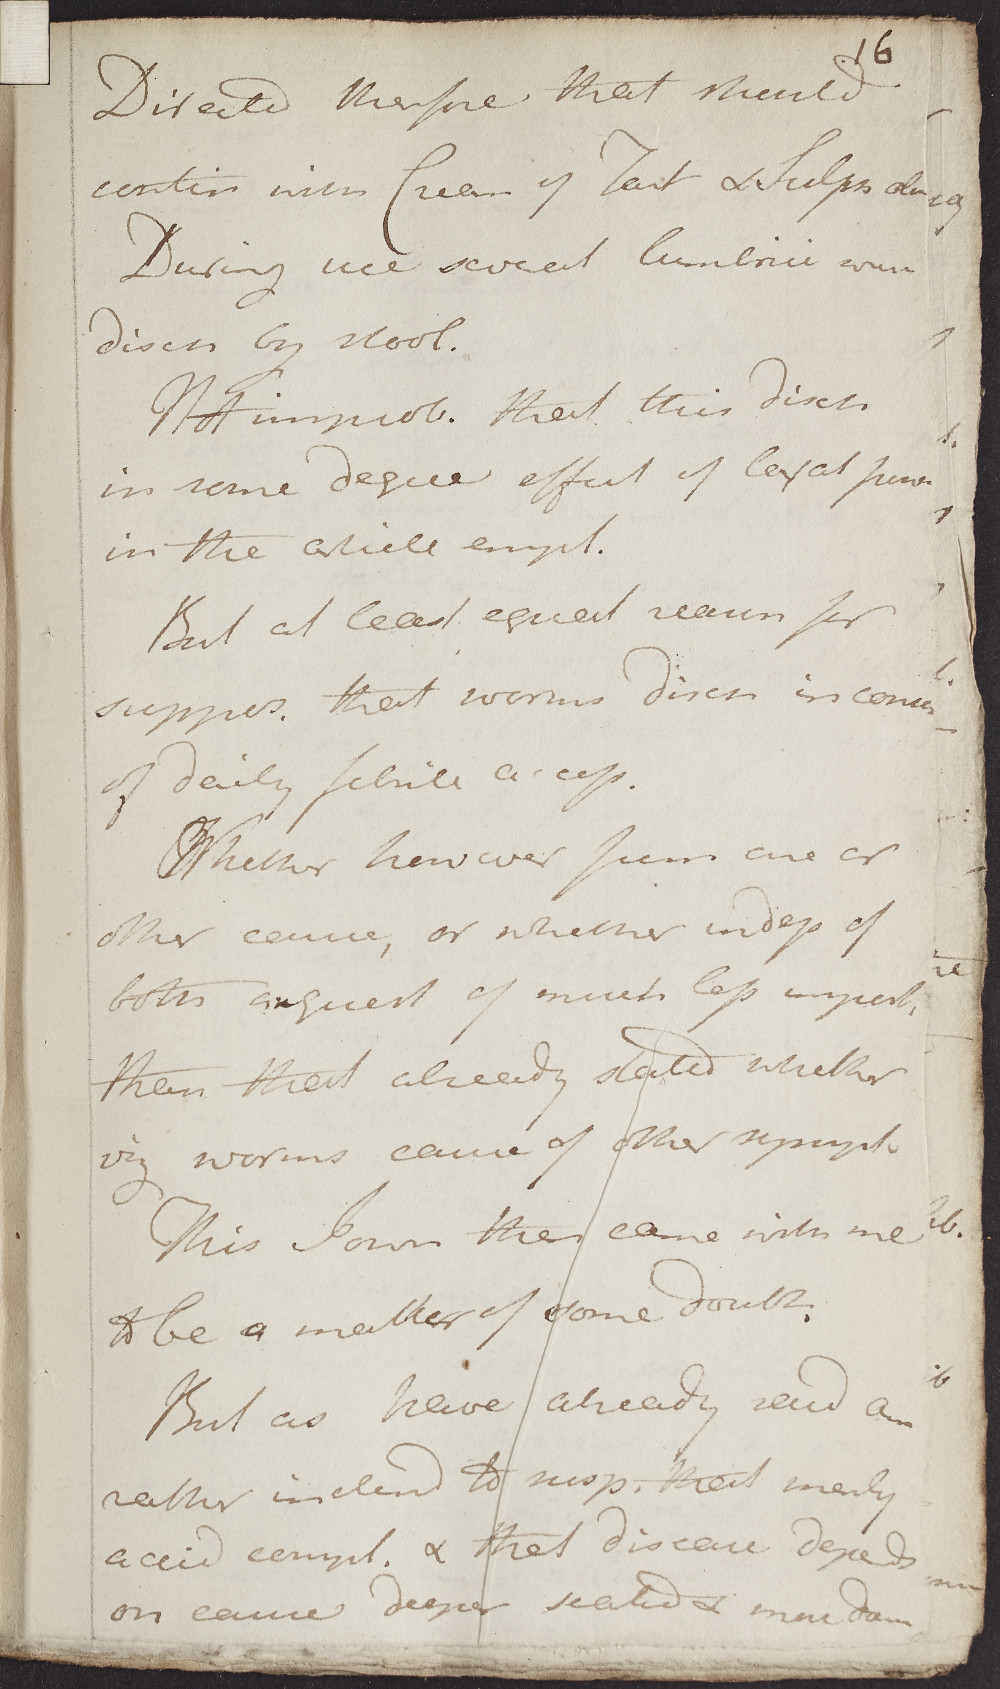 16
Directed therfore that should
contin with Cream of Tart & Sulph
During use several lumbrici were
disch by stool.
Not improb. that this disch
in some degree effect of laxat power
in the article empl.
But at least equal reason for
suppos. that worms disch in conseq
of daily febrile access.
Whether however from one or
other cause, or whether indep of
both a quest of much less import,
than that already stated whether
viz worms cause of other sympt.
This I own then came with me
to be a matter of some doubt.
But as have already said am
rather inclend to susp. that merely
accid compl. & that disease depends
on cause deeper seated & more dan